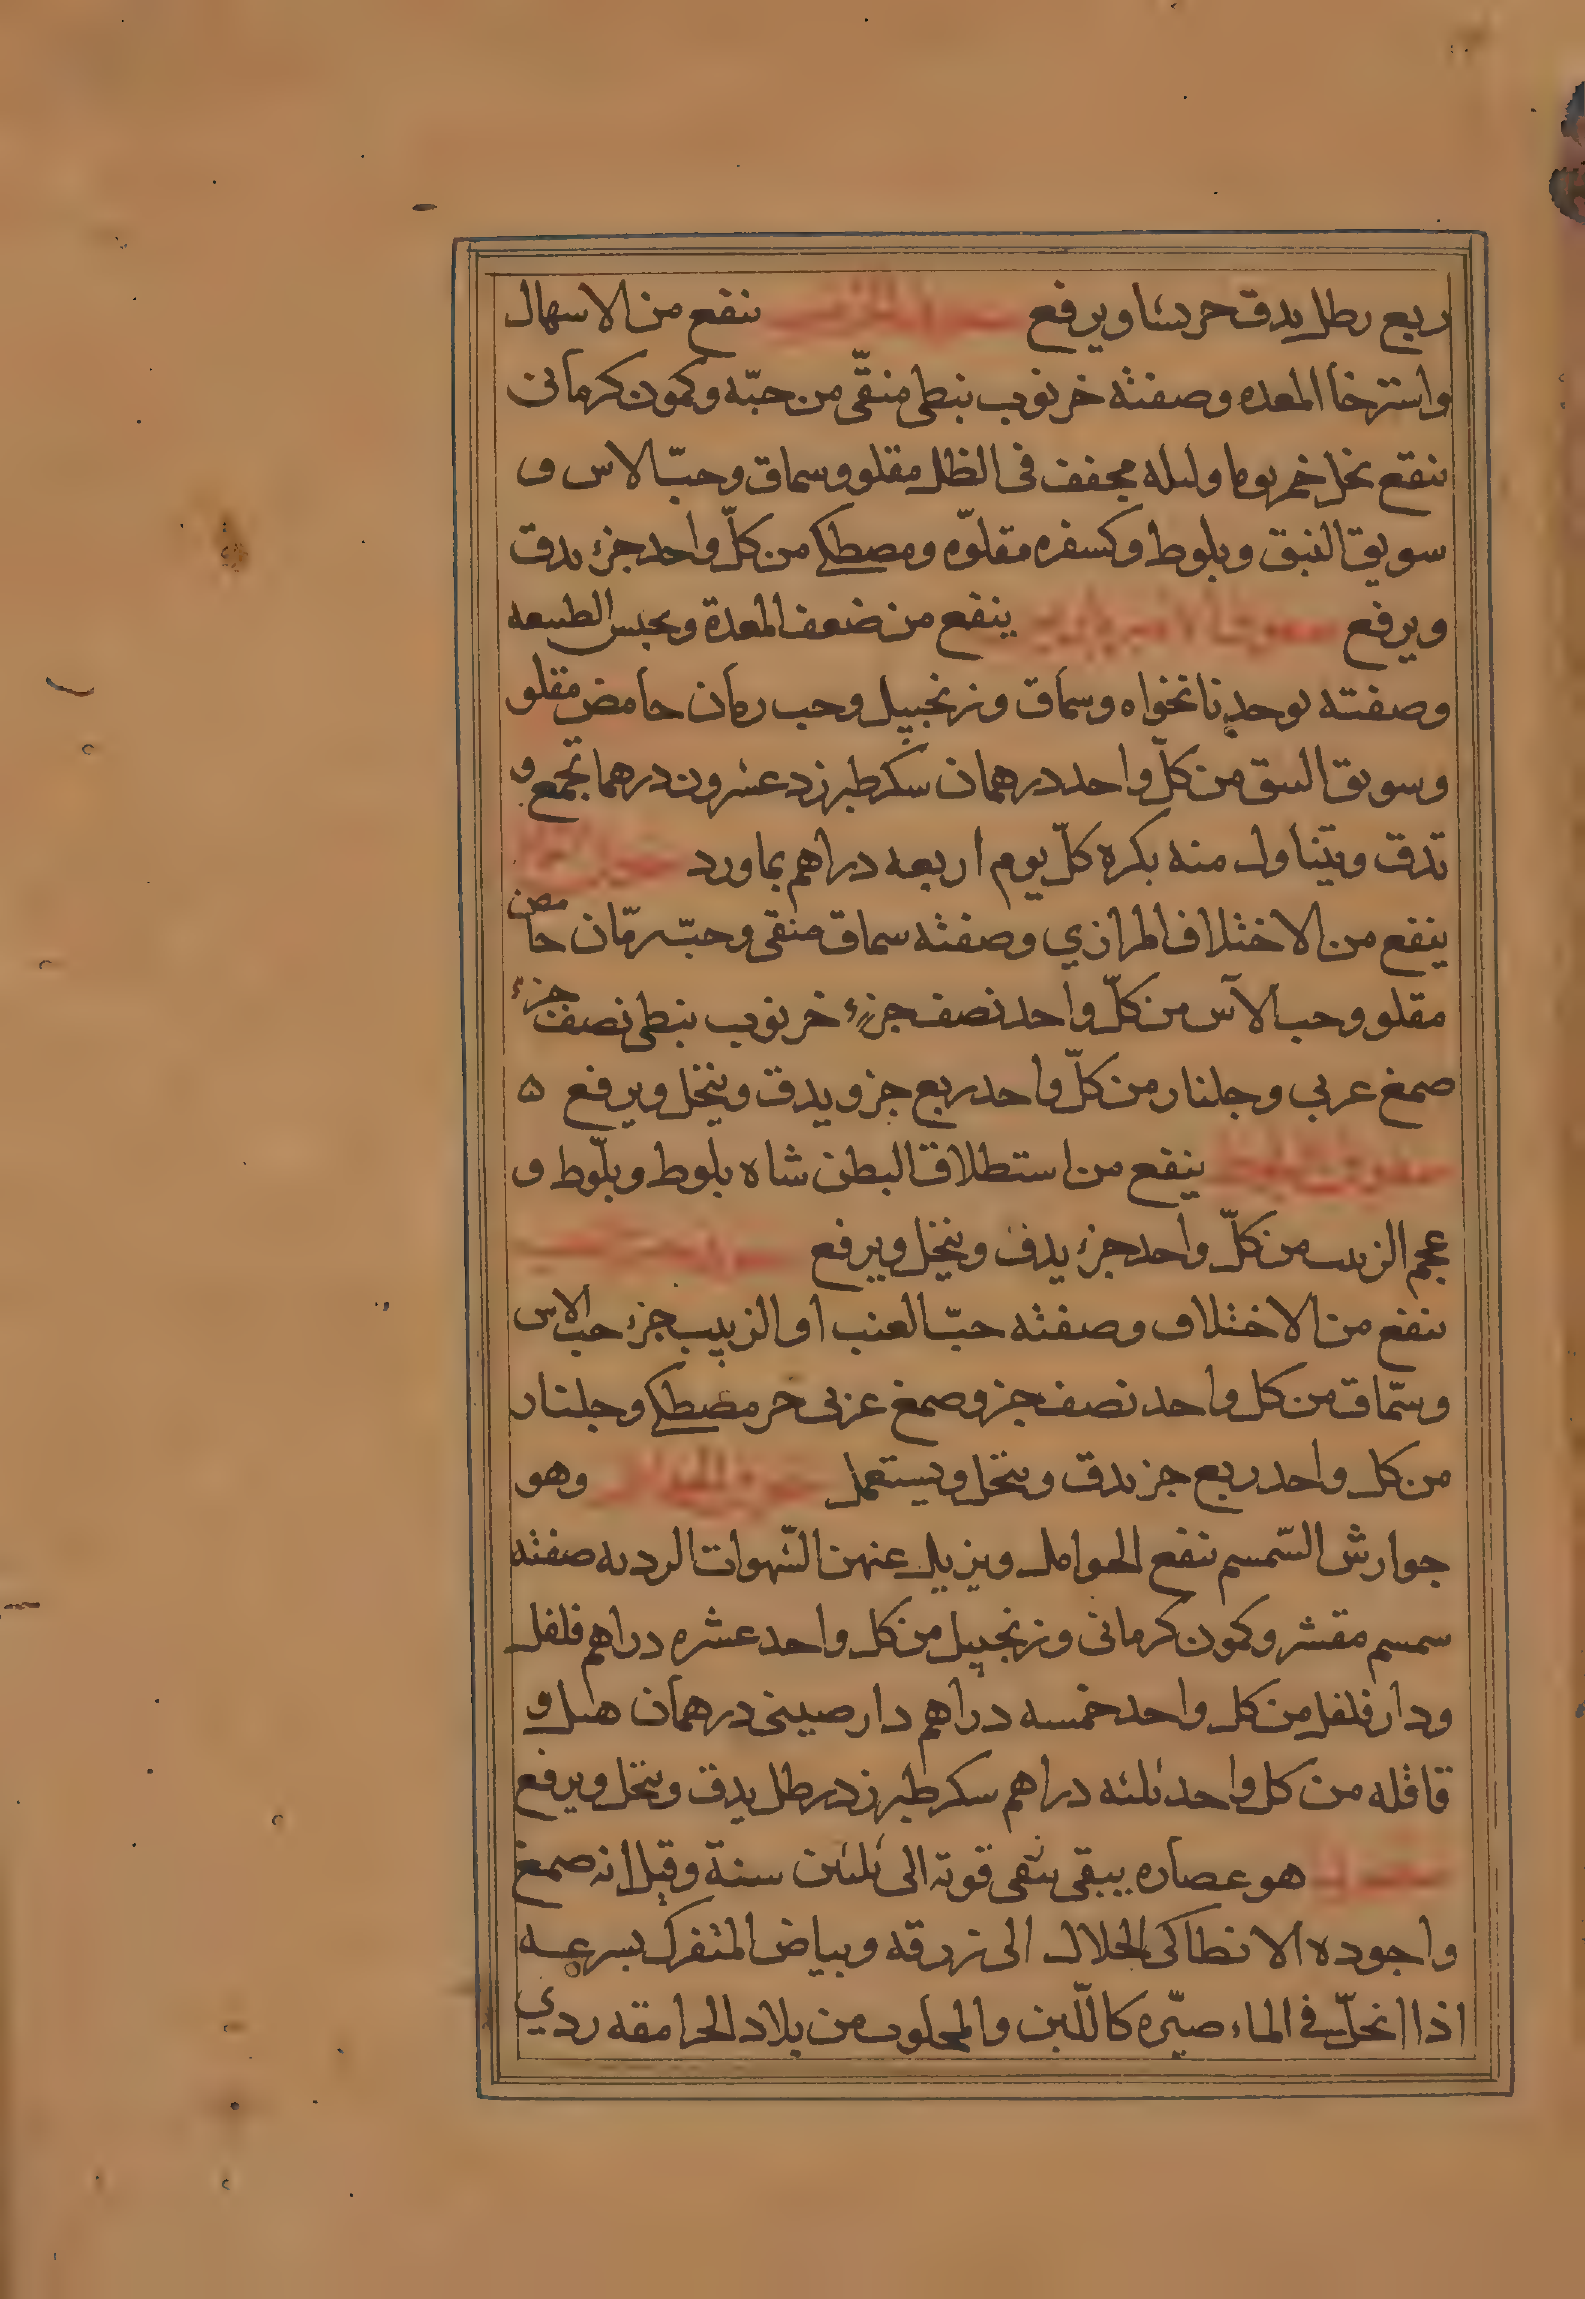 ربع رطل يدق جريشا ويرفع ينفع من الاسهال
واسترخا المعده وصفته خرنوب نبطى منقّى من حبّه وكمون كرمانى
ينقع بخل خمر يوما وليله مجفف فى الظل مقلو وسماق وحبّ الاس و
سويق النبق وبلوط وكسفره مقلوّه ومصطكا من كلّ واحد جزء يدق
ويرفع ينفع من ضعف المعدة ويحبس الطبيعه
وصفته يوخد نانخواه وسماق وزنجبيل وحب رمان حامض مقلو
وسويق النبق من كلّ واحد درهمان سكر طبرزد عشرون درهما تجمع و
تدق ويتناول منه بكره كلّ يوم اربعه دراهم بماورد
ينفع من الاختلاف المرازي وصفته سماق منقى وحبّ رمّان حامض
مقلو وحب الآس من كلّ واحد نصف جزء خرنوب نبطى نصف جزء
صمغ عربي وجلنار من كلّ واحد ربع جزو يدق وينخل ويرفع ه
ينفع من استطلاق البطن شاه بلوط وبلّوط و
عجم الزبيب من كلّ واحد جزء يدق وينخل ويرفع
ينفع من الاختلاف وصفته حبّ العنب او الزبيب جزء حب الاس
وسمّاق من كل واحد نصف جزو صمغ عربى مصطكا وجلنار
من كل واحد ربع جز يدق وينخل ويستعمل وهو
جوارش السّمسم ينفع الحوامل ويزيل عنهن الشّهوات الرديه صفته
سمسم مقشر وكمون كرمانى وزنجبيل من كل واحد عشره دراهم فلفل
ودار فلفل من كل واحد خمسه دراهم دار صينى درهمان هيل و
قاقله من كل واحد ثلثه دراهم سكر طبرزد رطل يدق وينخل ويرفع
هو عصاره يبقى قوته الى ثلثين سنة وقيل انه صمغ
واجوده الانطاكى الحلال الى زرقه وبياض المتفرك بسرعه
اذا انحلّ فى الماء صيّره كاللّبن والمجلوب من بلاد الجرامقه ردي